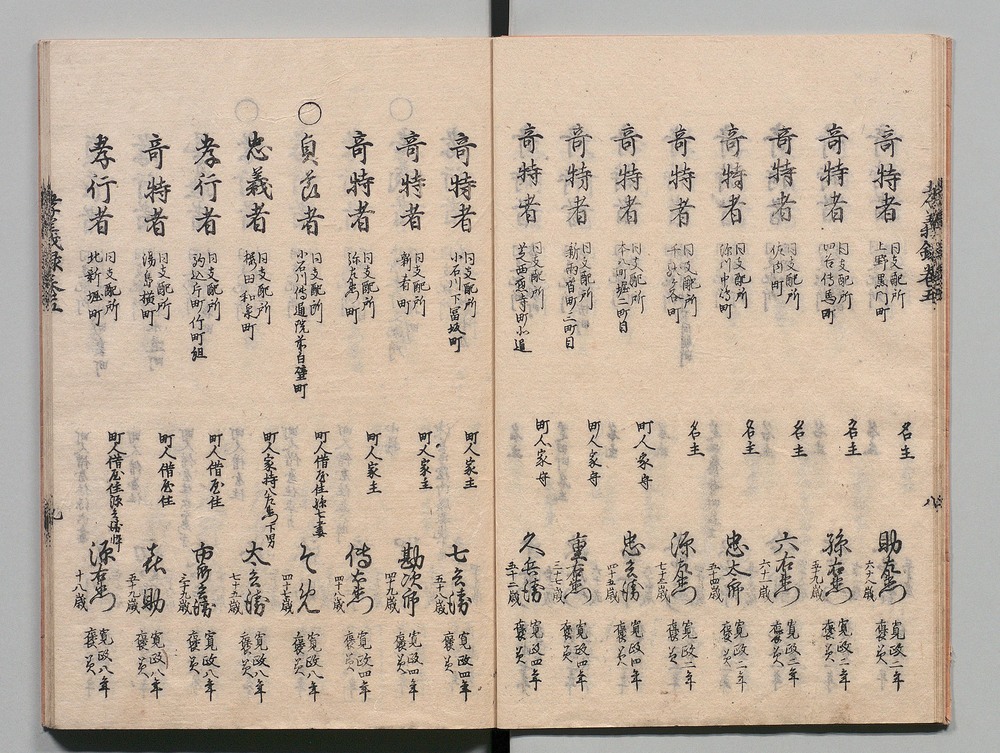 奇特者 同支配所 上野黒門町 名主 助左衛門 六十八歳 寛政二年 褒美
奇特者 同支配所 四谷傳馬町 名主 孫右衛門 五十九歳 寛政二年 褒美
奇特者 同支配所 佐内町 名主 六右衛門 六十一歳 寛政二年 褒美
奇特者 同支配所 深川中嶋町 名主 忠太郎 五十四歳 寛政二年 褒美
奇特者 同支配所 町 名主 源左衛門 七十三歳 寛政二年 褒美
奇特者 同支配所 本八町堀二町目 町人家守 忠兵衛 四十五歳 寛政四年 褒美
奇特者 同支配所 新両替町二町目 町人家守 重右衛門 三十七歳 寛政四年 褒美
奇特者 同支配所 芝西應寺町 町人家守 久兵衛 五十二歳 寛政四年 褒美
奇特者 同支配所 小石川下冨坂町 町人家主 七兵衛 五十八歳 寛政四年 褒美
奇特者 同支配所 新肴町 町人家主 勘次郎 四十九歳 寛政四年 褒美
奇特者 同支配所 弥左衛門町 町人家主 傳左衛門 四十八歳 寛政四年 褒美
○貞節者 同支配所 小石川傳通院前白壁町 町人借屋住孫七妻 そめ 四十七歳 寛政八年 褒美
忠義者 同支配所 神田和泉町 町人家持八左衛門下男 太兵衛 七十五歳 寛政八年 褒美
孝行者 同支配所 駒込片町行町組 町人借屋住 市郎兵衛 三十九歳 寛政八年 褒美
奇特者 同支配所 湯島横町 町人借屋住 喜助 五十九歳 寛政八年 褒美
孝行者 同支配所 北新堀町 町人借屋住源兵衛悴 源右衛門 十八歳 寛政八年 褒美